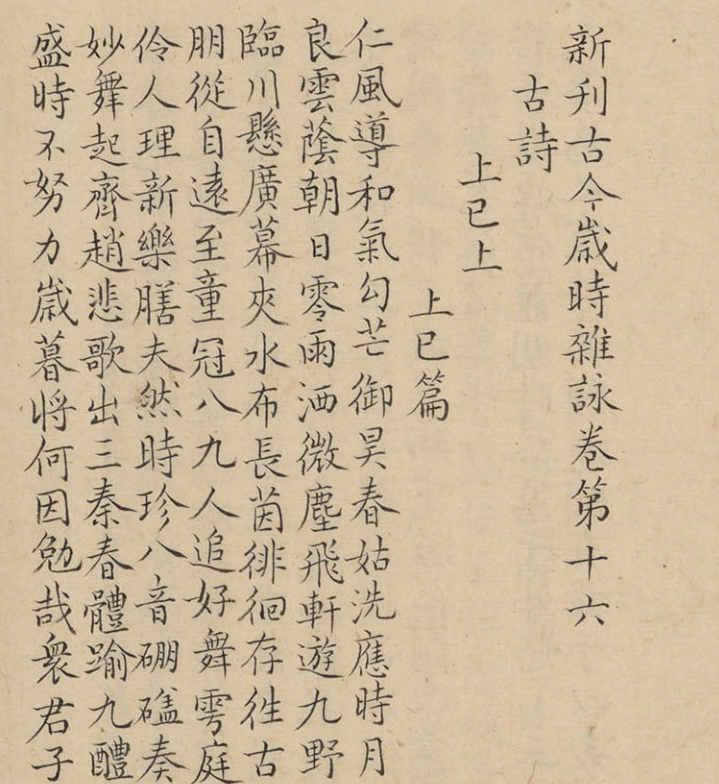 新刊古今歳時雜詠卷第十六
古詩
上巳上
上巳篇
仁風導和氣勾芒御昊春姑洗應時月
良雲蔭朝日零雨洒微塵飛軒遊九野
臨川懸廣幕夾水布長茵徘徊存徃古
朋從自遠至童冠八九人追好舞雩庭
伶人理新樂膳夫然時珍八音硼礚奏
妙舞起齊趙悲歌出三秦春體踰九醴
盛時不努力歳暮将何因勉哉衆君子